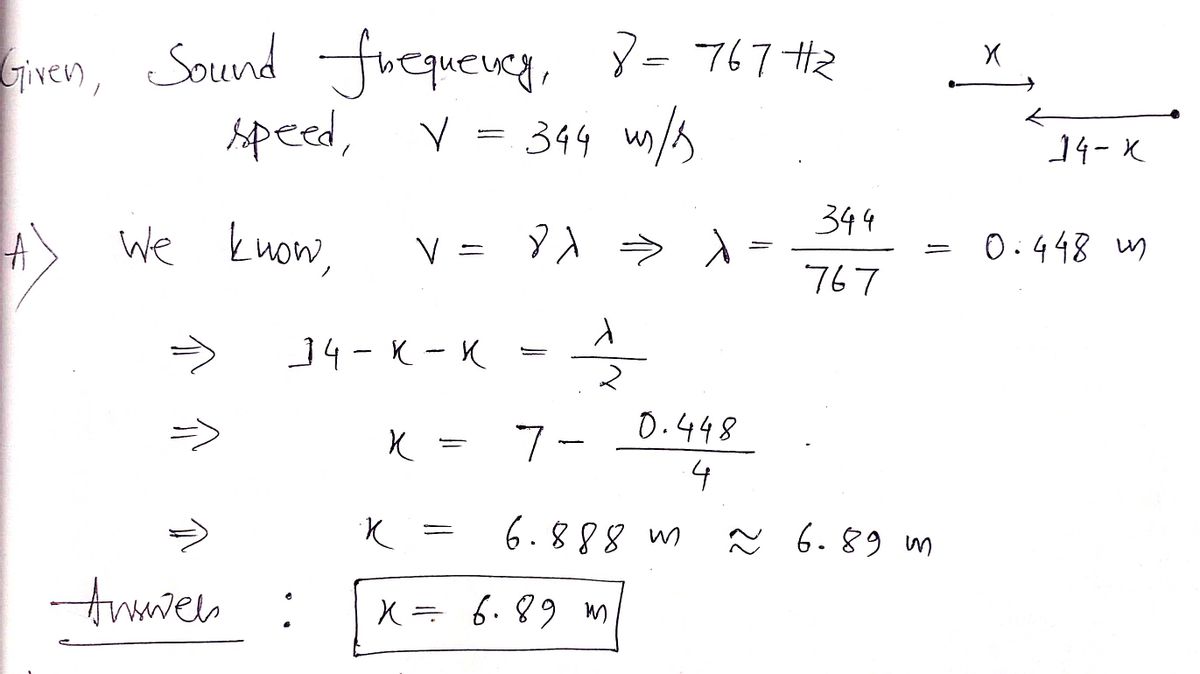 Given, Sound frequency, γ = 767 Hz
x
speed, v = 344 m/s
14-x
A) We know, v = γλ ⇒ λ = 344/767 = 0.448 m
⇒ 14-x-x = λ/2
⇒ x = 7 - 0.448/4
⇒ x = 6.888 m ≈ 6.89 m
Answer : x = 6.89 m